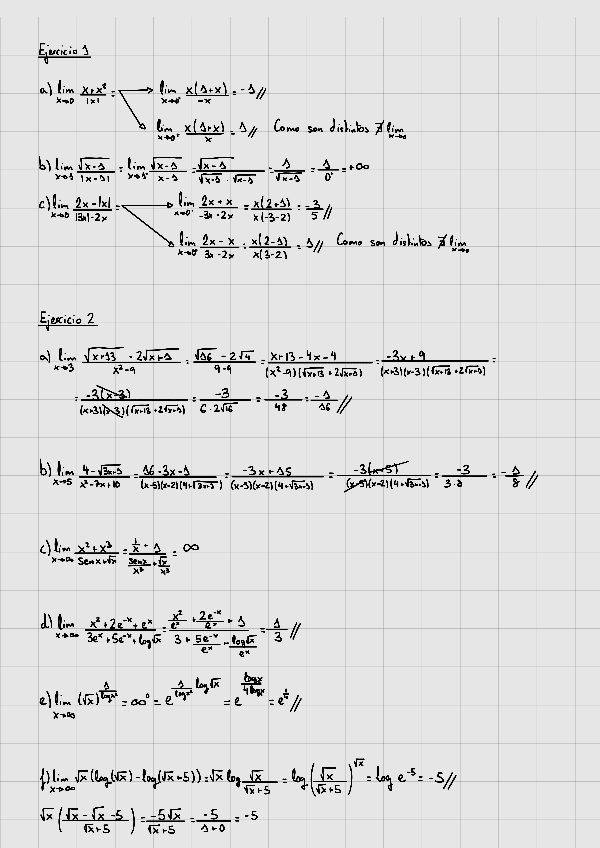 Ejercicio 1
a) lim x→0 (x+x²)/|x| = → lim x→0⁻ x(1+x)/-x = -1//
→ lim x→0⁺ x(1+x)/x = 1// Como son distintos ∄ lim x→0
b) lim x→1 √(x-1)/|x-1| = lim x→1⁺ √(x-1)/(x-1) = √(x-1)/(√(x-1)·√(x-1)) = 1/√(x-1) = 1/0⁺ = +∞
c) lim x→0 (2x-|x|)/(|3x|-2x) = → lim x→0⁻ (2x+x)/(-3x-2x) = x(2+1)/x(-3-2) = -3/5//
→ lim x→0⁺ (2x-x)/(3x-2x) = x(2-1)/x(3-2) = 1// Como son distintos ∄ lim x→0
Ejercicio 2
a) lim x→3 (√(x+13) - 2√(x+1))/(x²-9) = (√16 - 2√4)/(9-9) = (x+13-4x-4)/((x²-9)(√(x+13)+2√(x+1))) = (-3x+9)/((x+3)(x-3)(√(x+13)+2√(x+1))) =
= -3(x-3)/((x+3)(x-3)(√(x+13)+2√(x+1))) = -3/(6·2√16) = -3/48 = -1/16//
b) lim x→5 (4-√(3x+1))/(x²-7x+10) = (16-3x-1)/((x-5)(x-2)(4+√(3x+1))) = (-3x+15)/((x-5)(x-2)(4+√(3x+1))) = -3(x-5)/((x-5)(x-2)(4+√(3x+1))) = -3/(3·8) = -1/8//
c) lim x→∞ (x²+x³)/(senx+√x) = (1/x+1)/(senx/x³+√x/x³) = ∞
d) lim x→∞ (x²+2e⁻ˣ+eˣ)/(3eˣ+5e⁻ˣ+log√x) = (x²/eˣ+2e⁻ˣ/eˣ+1)/(3+5e⁻ˣ/eˣ+log√x/eˣ) = 1/3//
e) lim x→∞ (√x)^(1/logx²) = ∞⁰ = e^(1/logx² log√x) = e^(logx/4logx) = e^(1/4)//
f) lim x→∞ √x(log(√x)-log(√x+5)) = √x log √x/(√x+5) = log(√x/(√x+5))^√x = log e⁻⁵ = -5//
√x((√x-√x-5)/(√x+5)) = -5√x/(√x+5) = -5/(1+0) = -5